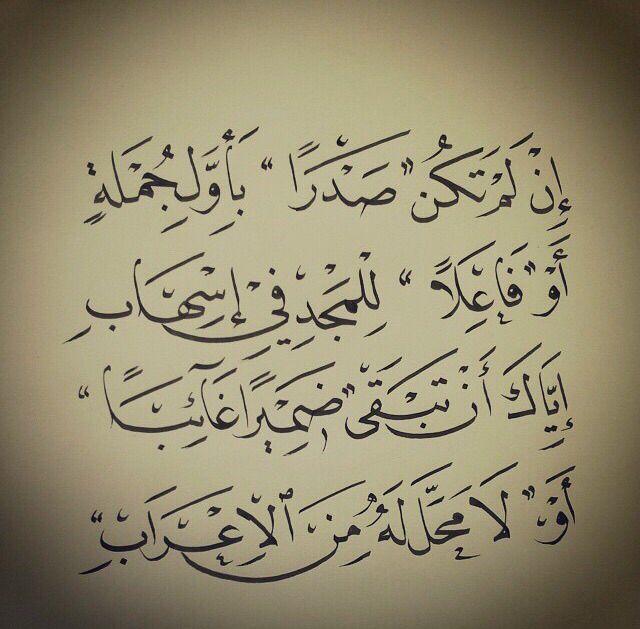 إِنْ لَمْ تَكُن "صَدْرًا" بِأَوَّلِ جُمْلَةٍ
أَوْ "فَاعِلًا" لِلْمَجْدِ فِي إِسْهَابِ
إِيَّاكَ أَنْ تَبْقَى "ضَمِيرًا غَائِبًا"
أَوْ "لَا مَحَلَّ لَهُ مِنَ ٱلْإِعْرَابِ"